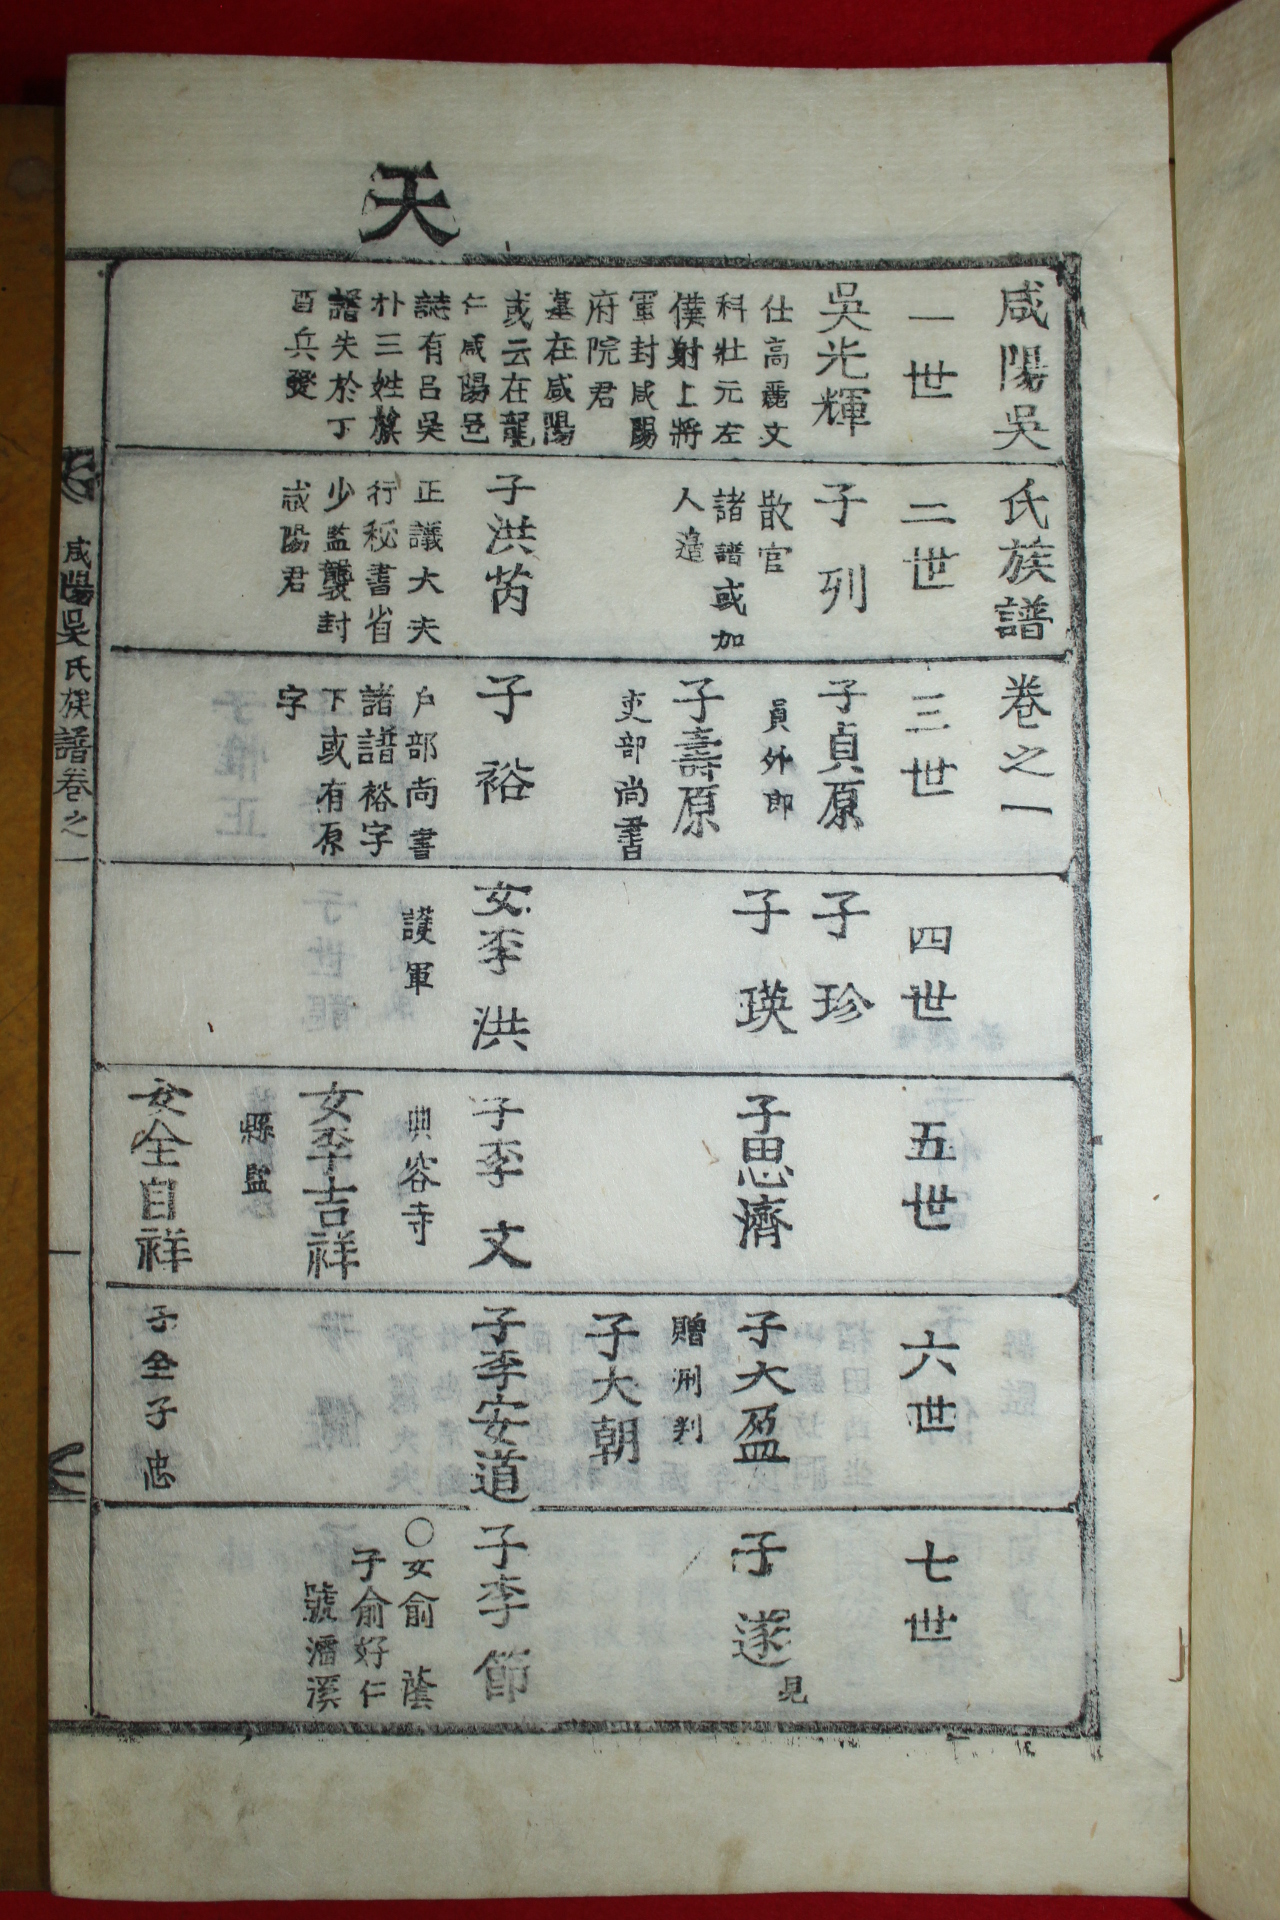 天
咸陽吳氏族譜卷之一
一世
吳光輝
仕高麗文
科壯元左
僕射上將
軍封咸陽
府院君
墓在咸陽
或云在龍
仁咸陽邑
誌有呂吳
朴三姓族
譜失於丁
酉兵燹
二世
子列
散官
諸譜或加
人邊
子洪芮
正議大夫
行秘書省
少監襲封
咸陽君
三世
子貞原
員外郎
子壽原
吏部尚書
子裕
戶部尚書
諸譜裕字
下或有原
字
四世
子珍
子瑛
女李洪
護軍
五世
子思濟
子李文
典容寺
女李吉祥
縣監
女全自祥
六世
子大盈
贈刑判
子大朝
子李安道
子全子忠
七世
子遂
見
子李節
○女俞蔭
子俞好仁
號㵢溪
咸陽吳氏族譜卷之一
一